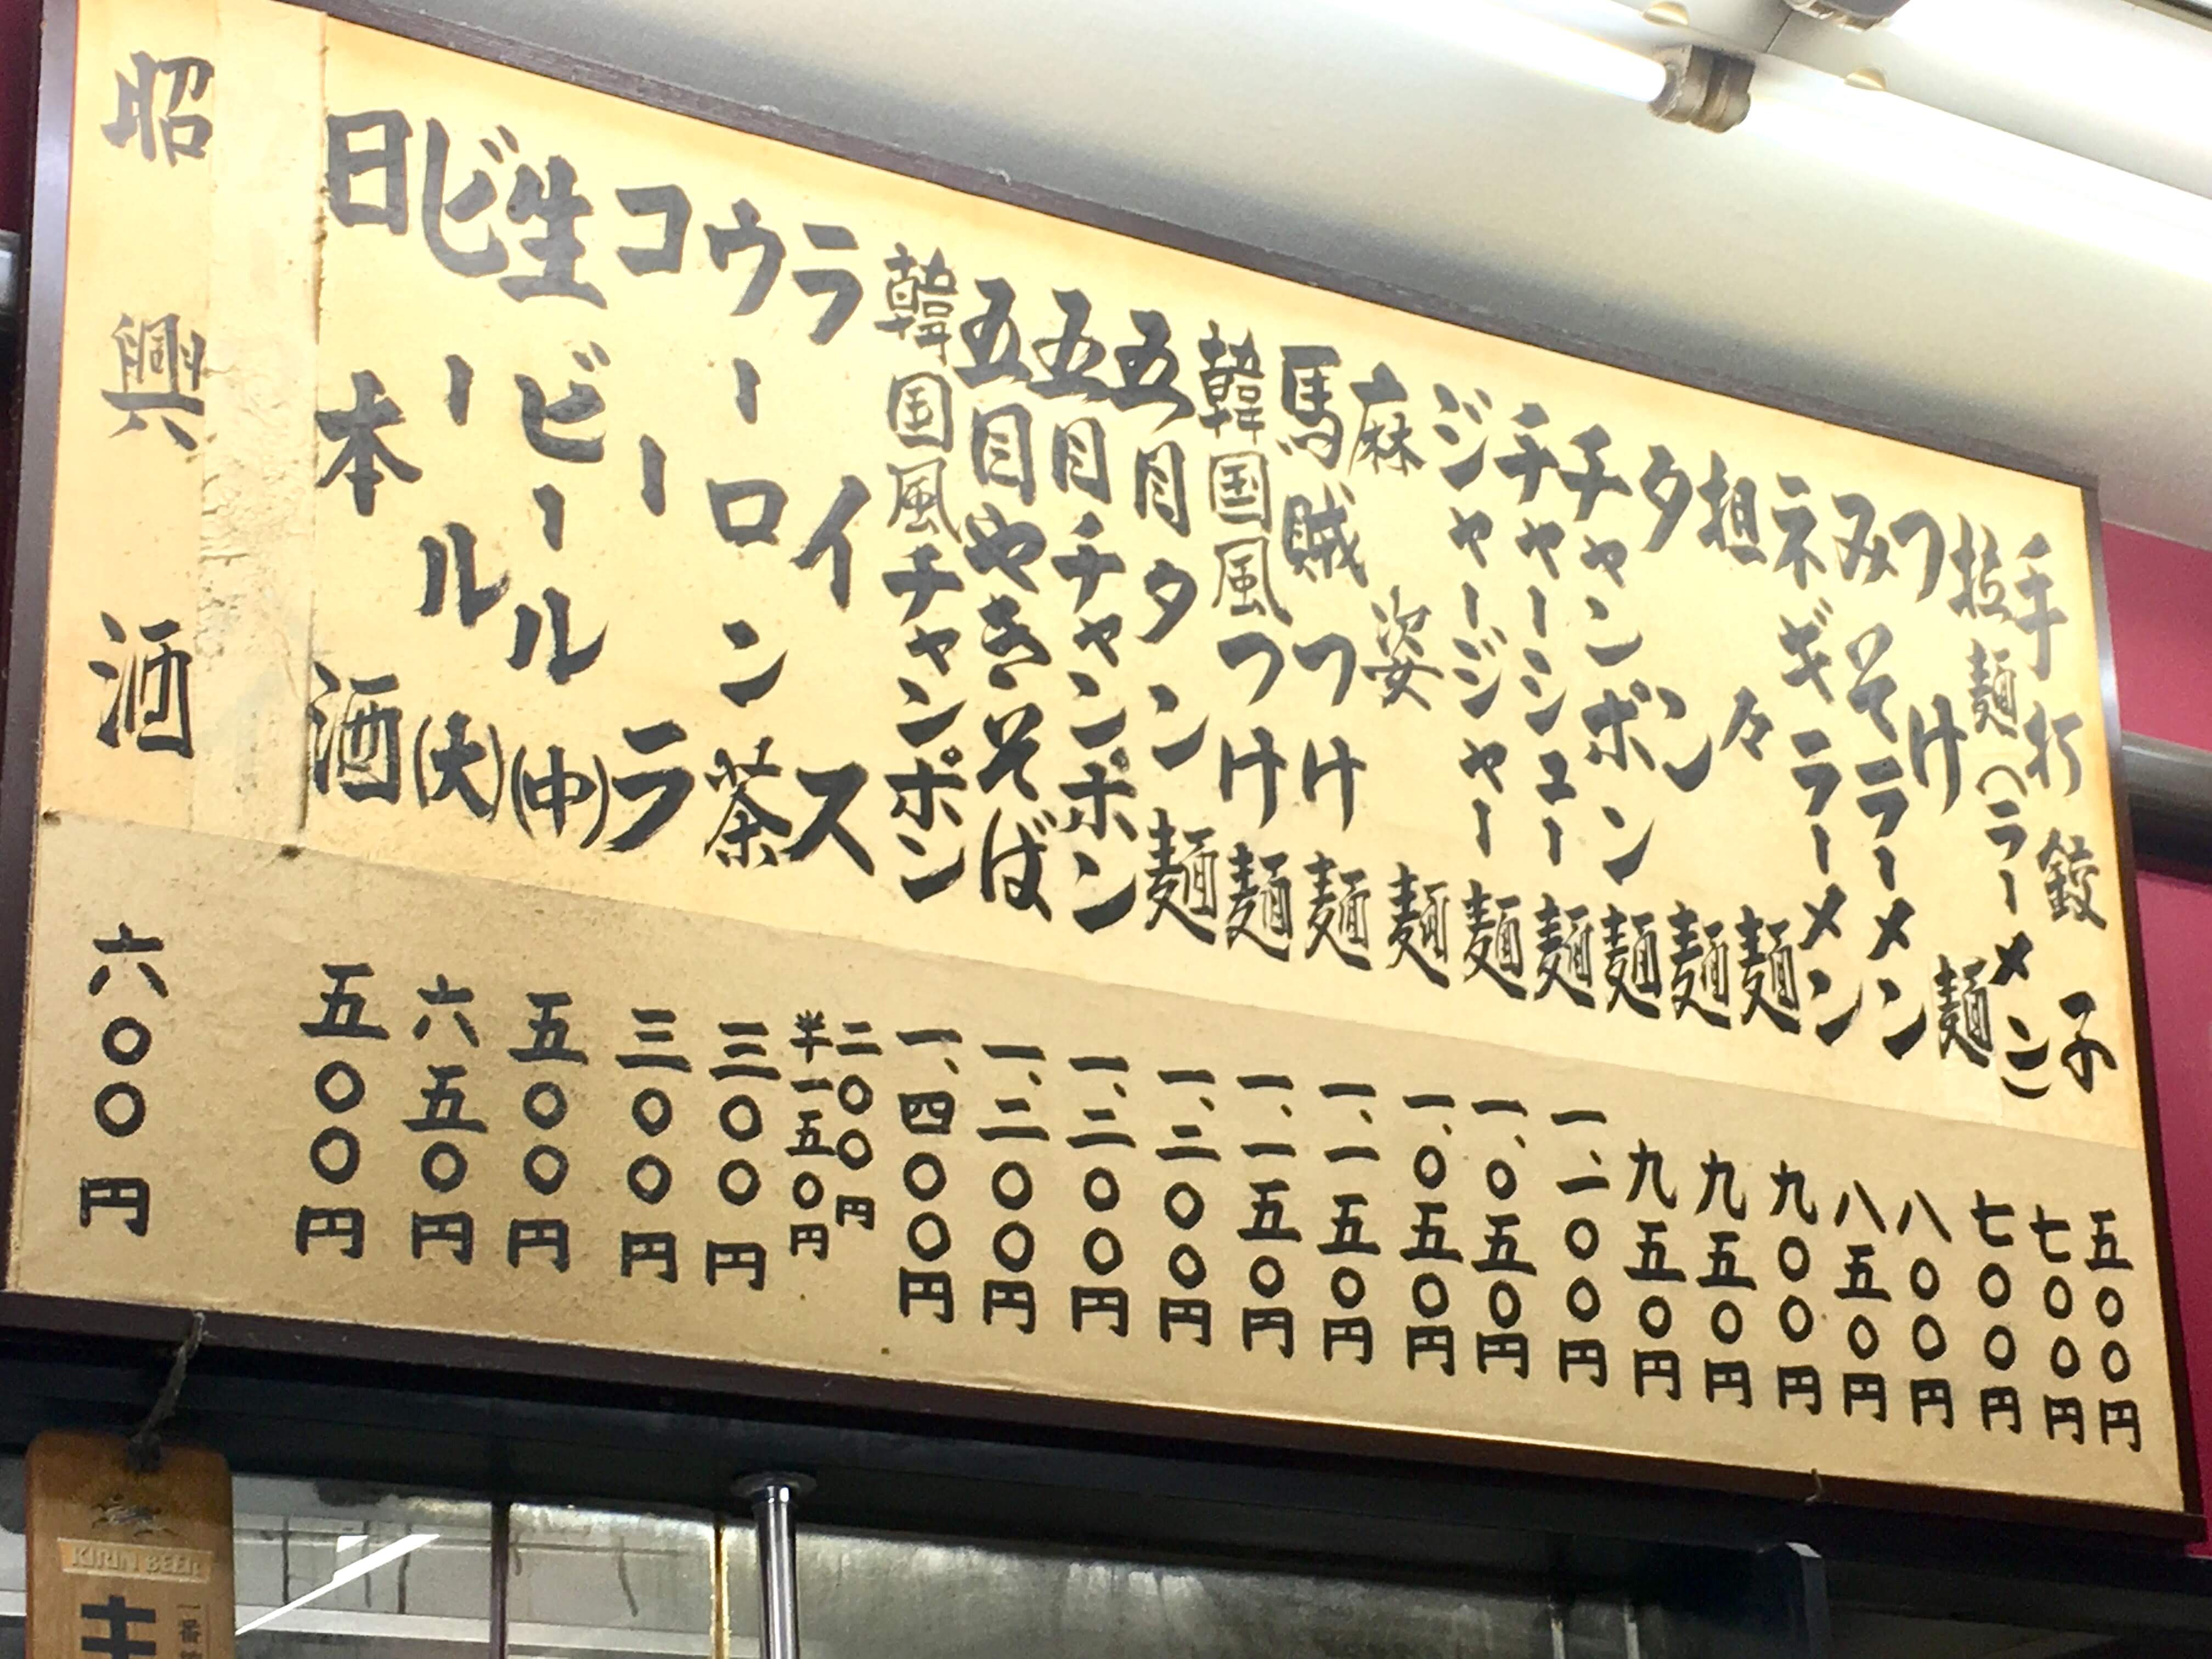 手打餃子 五〇〇円
拉麺(ラーメン) 七〇〇円
つけ麺 七〇〇円
みそラーメン 八〇〇円
ネギラーメン 八五〇円
担々麺 九〇〇円
タン麺 九五〇円
チャンポン麺 九五〇円
チャーシュー麺 一、一〇〇円
ジャージャー麺 一、〇五〇円
麻婆麺 一、〇五〇円
馬賊つけ麺 一、一五〇円
韓国風つけ麺 一、一五〇円
五目タン麺 一、二〇〇円
五目チャンポン 一、二〇〇円
五目やきそば 一、二〇〇円
韓国風チャンポン 一、四〇〇円
ライス 二〇〇円
半一五〇円
ウーロン茶 三〇〇円
コーラ 三〇〇円
生ビール(中) 五〇〇円
ビール(大) 六五〇円
日本酒 五〇〇円
昭興酒 六〇〇円
KIRIN BEER
キ
一番